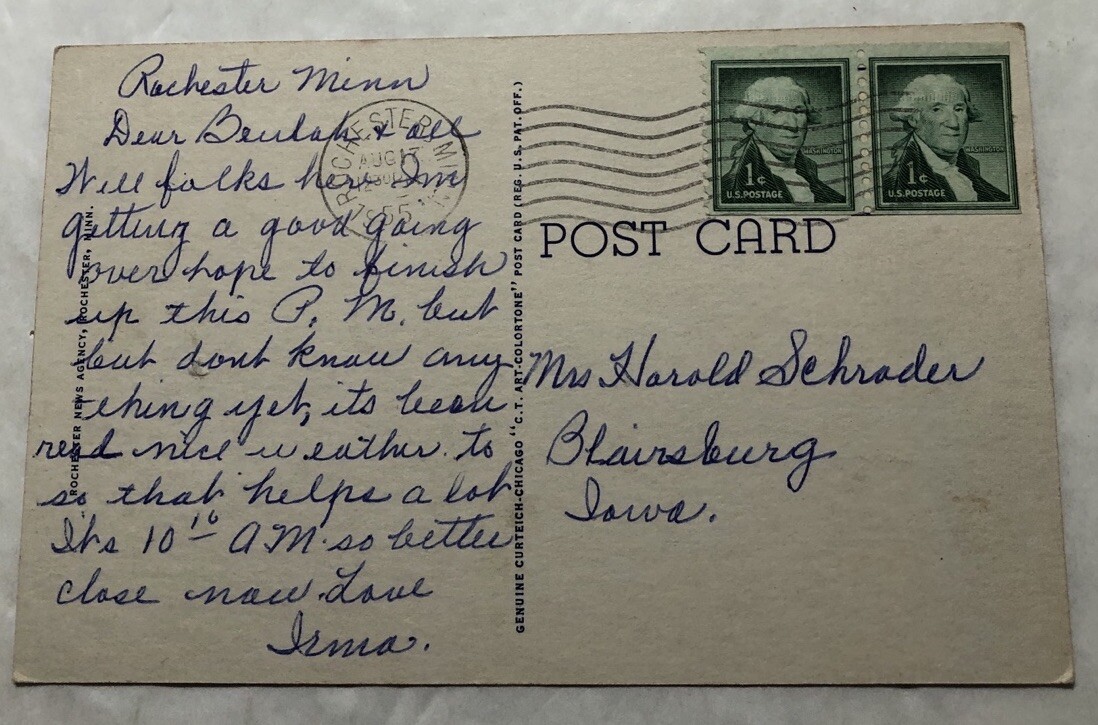 Rochester Minn
Dear Beulah & all
Well folks here Im
getting a good going
over hope to finish
up this P. M. but
but dont know any
thing yet, its been
real nice weather to
so that helps a lot
It's 10 10 A.M. so better
close now. Love
Irma.
ROCHESTER NEWS AGENCY, ROCHESTER, MINN.
ROCHESTER MINN.
AUG 17
1955
GENUINE CURTEICH-CHICAGO "C.T. ART-COLORTONE" POST CARD (REG. U.S. PAT. OFF.)
WASHINGTON
1¢
U.S. POSTAGE
WASHINGTON
1¢
U.S. POSTAGE
POST CARD
Mrs Harold Schrader
Blairsburg
Iowa.